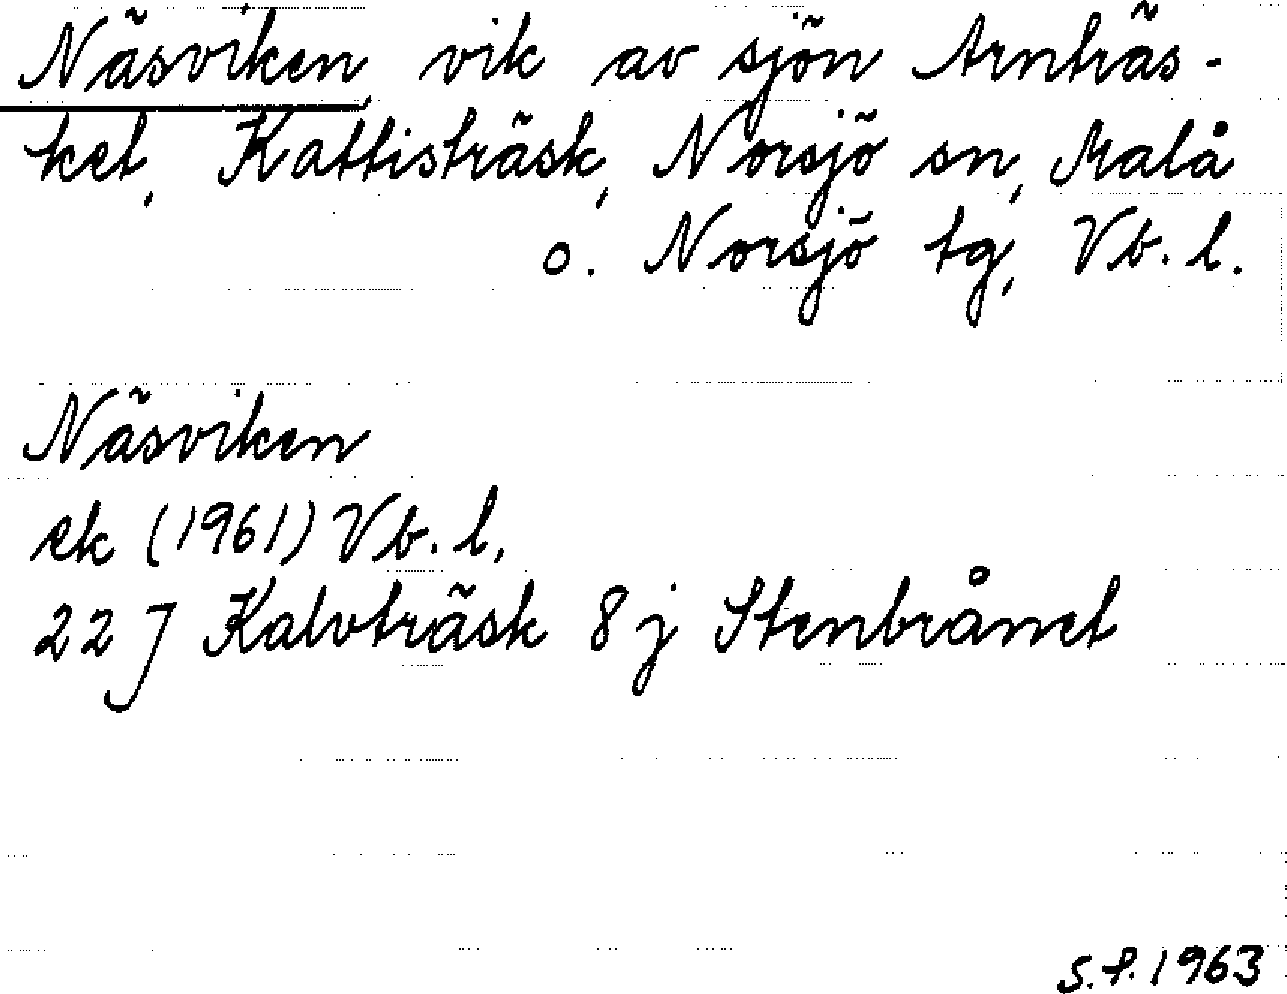 Näsviken, vik av sjön Arnträs-
ket, Kattisträsk, Norsjö sn, Malå
o. Norsjö tg, Vb. l.
Näsviken
ek (1961) Vb. l.
22 J Kalvträsk 8 j Stenbrånet
S.P. 1963